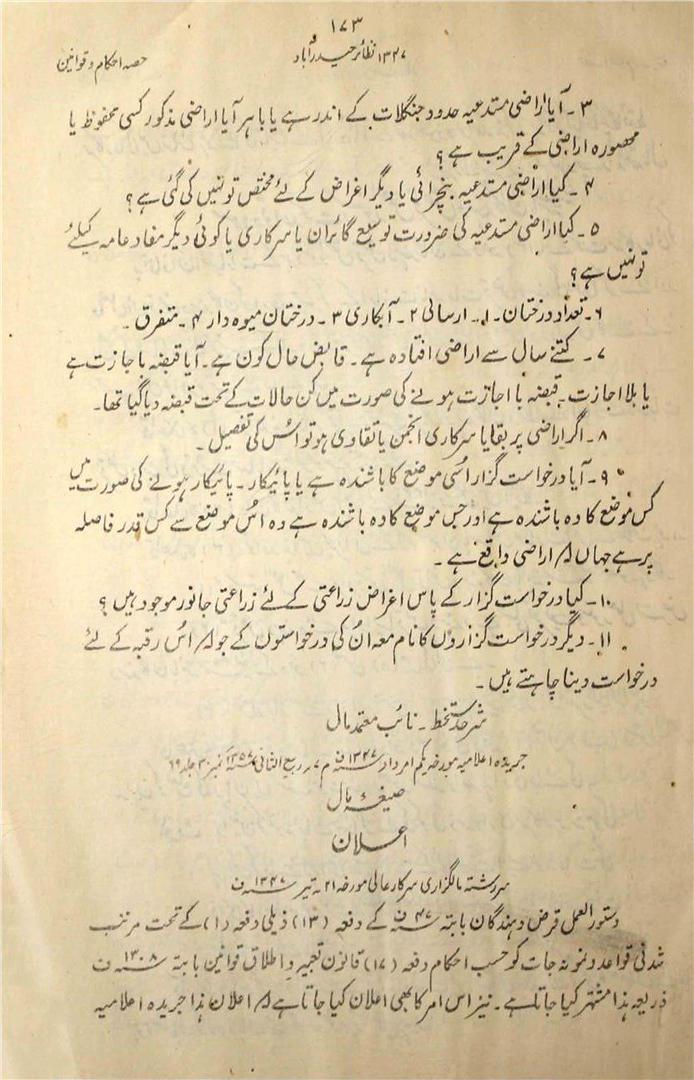 ۱۷۳
۱۳۴۷ نظائر حیدرآباد
حصہ احکام و قوانین
۳ ۔ آیا اراضی متدعیہ حدود جنگلات کے اندر ہے یا باہر آیا اراضی مذکور کسی محفوظ یا
محصورہ اراضی کے قریب ہے ؟
۴ ۔ کیا اراضی متدعیہ بنچرائی یا دیگر اغراض کے لئے مختص تو نہیں کی گئی ہے ؟
۵ ۔ کیا اراضی متدعیہ کی ضرورت توسیع گائران یا سرکاری یا کوئی دیگر مفاد عامہ کیلئے
تو نہیں ہے ؟
۶ ۔ تعداد درختان ۔ ۱ ۔ ارسالی ۲ ۔ آبکاری ۳ ۔ درختان میوہ دار ۴ ۔ متفرق ۔
۷ ۔ کتنے سال سے اراضی افتادہ ہے ۔ قابض حال کون ہے ۔ آیا قبضہ باجازت ہے
یا بلا اجازت ۔ قبضہ با اجازت ہونے کی صورت میں کن حالات کے تحت قبضہ دیا گیا تھا ۔
۸ ۔ اگر اراضی پر بقایا سرکاری انجمن یا تقاوی ہو تو اُس کی تفصیل ۔
۹ ۔ آیا درخواست گزار اُسی موضع کا باشندہ ہے یا پائیکار ۔ پائیکار ہونے کی صورت میں
کس موضع کا وہ باشندہ ہے اور جس موضع کا وہ باشندہ ہے وہ اُس موضع سے کس قدر فاصلہ
پر ہے جہاں اراضی واقع ہے ۔
۱۰ ۔ کیا درخواست گزار کے پاس اغراض زراعتی کے لئے زراعتی جانور موجود ہیں ؟
۱۱ ۔ دیگر درخواست گزاروں کا نام معہ اُن کی درخواستوں کے جو اُس رقبہ کے لئے
درخواست دینا چاہتے ہیں ۔
شرحدستخط ۔ نائب معتمد مال
جریدہ اعلامیہ مورخہ یکم امرداد ۱۳۴۷ ف م ۷ ۔ ربیع الثانی ۱۳۵۷ نمبر ۳۰ جلد ۶۹
صیغہ مال
اعلان
سررشتہ مالگزاری سرکار عالی مورخہ ۲۱ ۔ تیر ۱۳۴۷ ف
دستور العمل قرض دہندگان بابتہ ۴۷ ف کے دفعہ (۱۳) ذیلی دفعہ (۱) کے تحت مرتب
شدنی قواعد و نمونہ جات کو حسب احکام دفعہ (۱۷) قانون تعبیر و اطلاق قوانین بابتہ ۱۳۰۸ ف
ذریعہ ہذا مشتہر کیا جاتا ہے ۔ نیز اس امر کا بھی اعلان کیا جاتا ہے اعلان ہذا جریدہ اعلامیہ